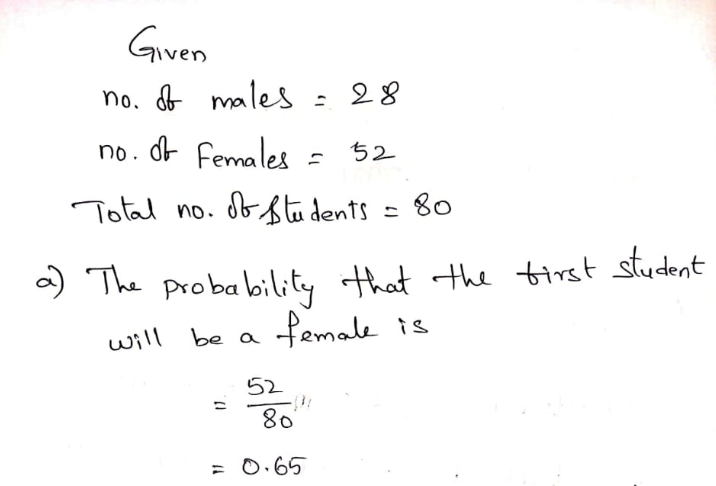 Given
no. of males = 28
no. of Females = 52
Total no. of students = 80
a) The probability that the first student
will be a female is
= 52/80
= 0.65